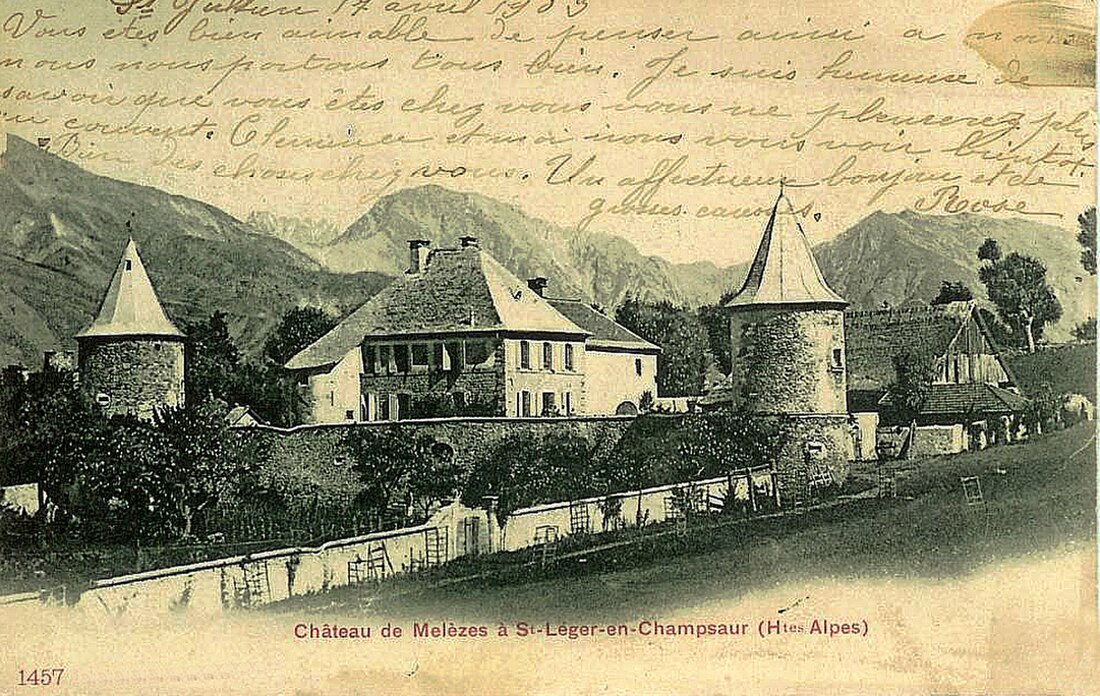 St Julien 17 avril 1903
Vous êtes bien aimable de penser ainsi a nous
nous nous portons tous bien. Je suis heureuse de
savoir que vous êtes chez vous vous ne pleurerez plus
au couvent. Clemence et moi nous vous voir bientot
bien des choses chez vous. Un affectueux bonjour et de
grosses caresses. Rose
Château de Melèzes à St-Léger-en-Champsaur (Htes Alpes)
1457